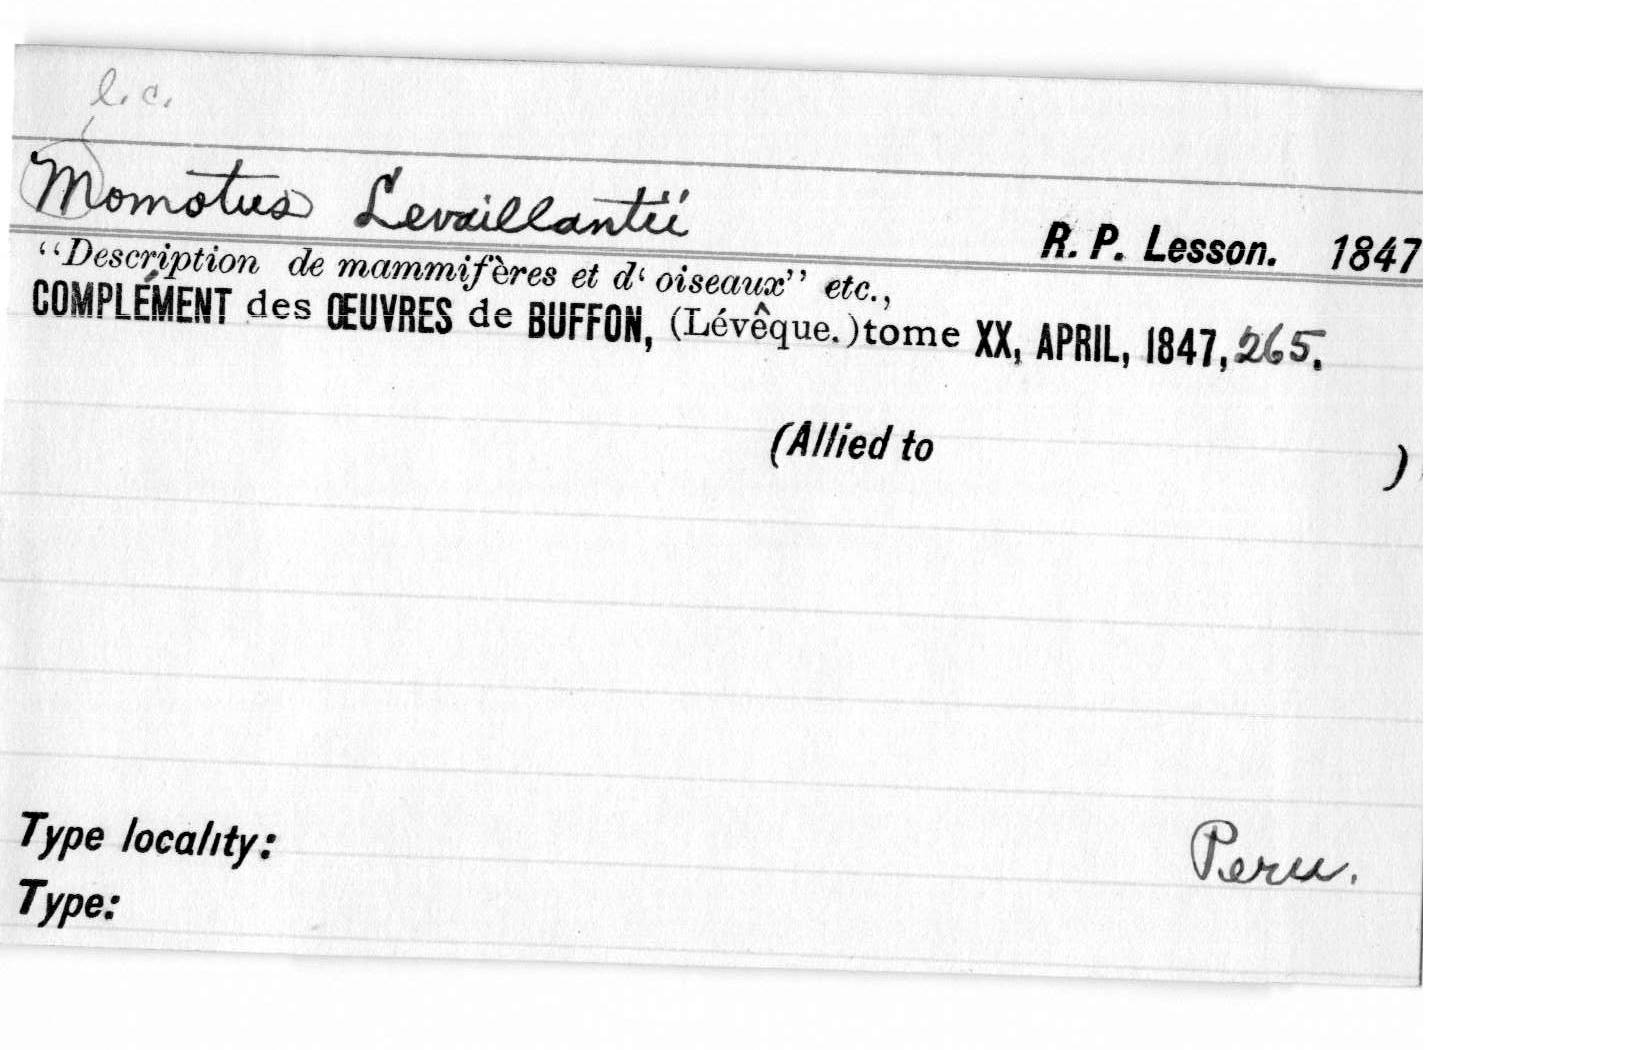 l.c.
Momotus Levaillantii
R. P. Lesson. 1847
“Description de mammifères et d‘ oiseaux” etc.,
COMPLÉMENT des ŒUVRES de BUFFON, (Lévêque.) tome XX, APRIL, 1847, 265.
(Allied to )
Type locality: Peru.
Type: